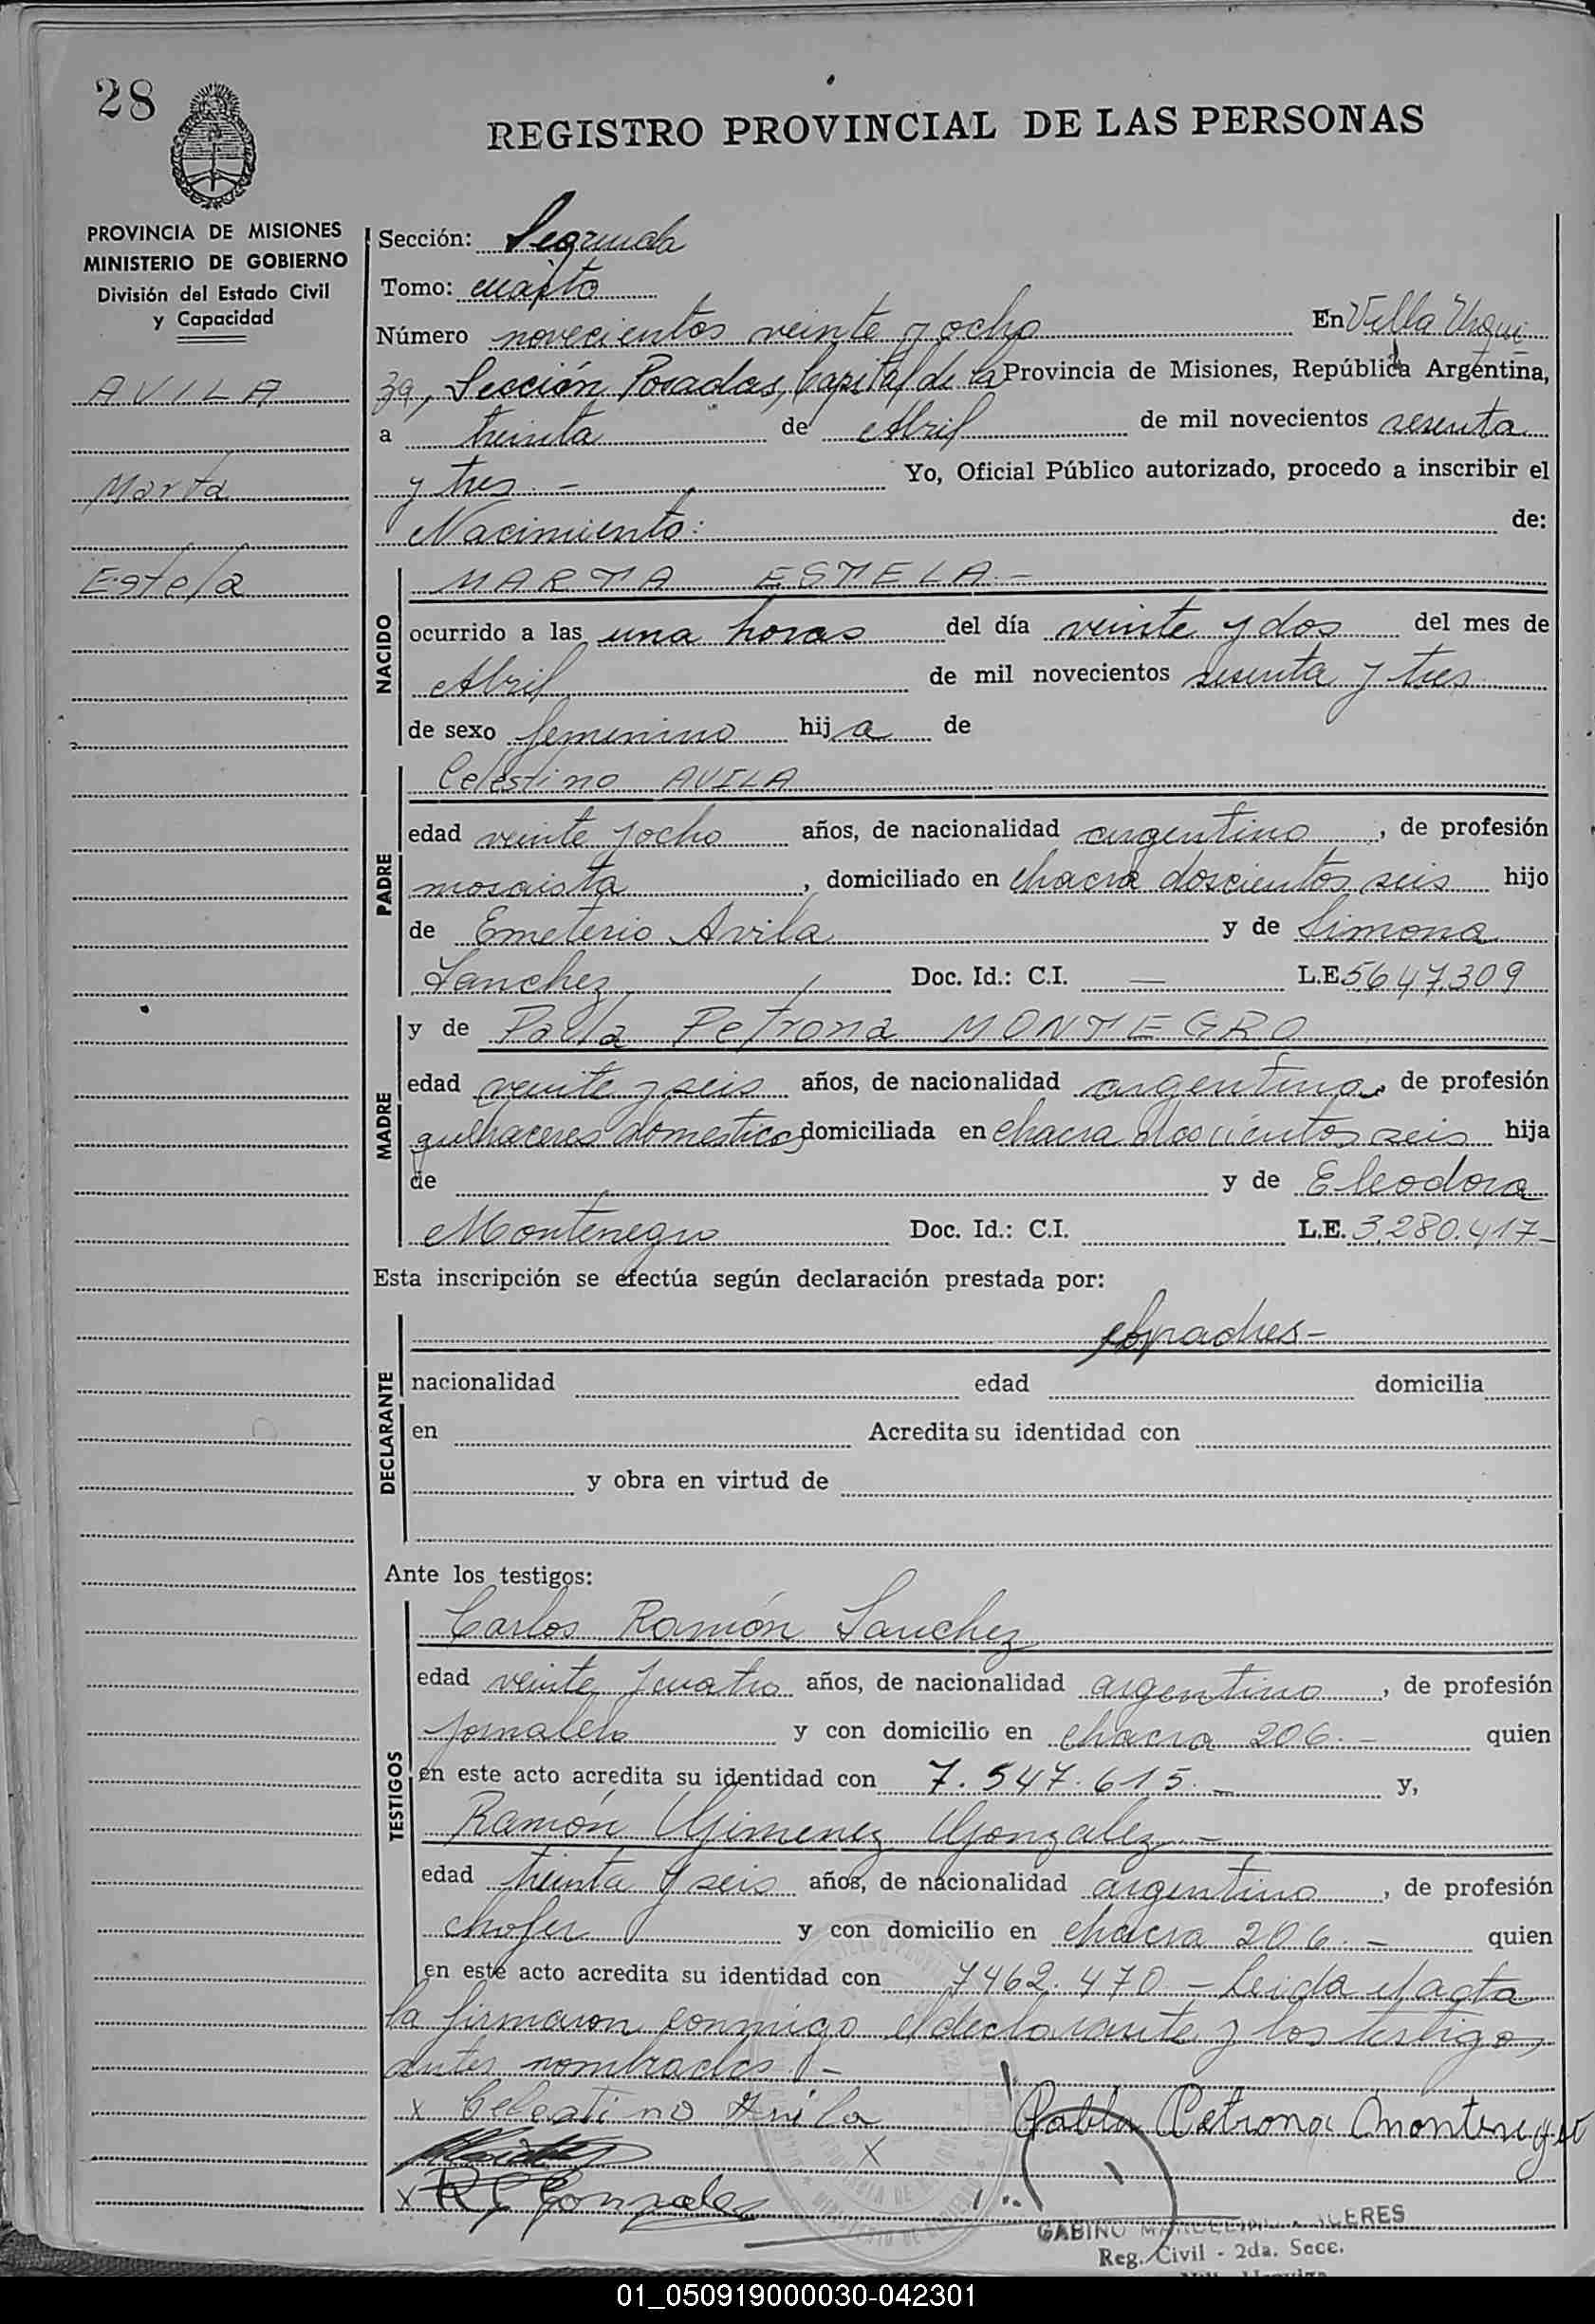 28
REGISTRO PROVINCIAL DE LAS PERSONAS
PROVINCIA DE MISIONES
MINISTERIO DE GOBIERNO
División del Estado Civil
y Capacidad
AVILA
Marta
Estela
Sección: Segunda
Tomo: cuarto
Número novecientos veinte y ocho En Villa Urqui
za, Sección Posadas, Capital de la Provincia de Misiones, República Argentina,
a treinta de Abril de mil novecientos sesenta
y tres.- Yo, Oficial Público autorizado, procedo a inscribir el
Nacimiento: de:
NACIDO
MARTA ESTELA.-
ocurrido a las una horas del día veinte y dos del mes de
Abril de mil novecientos sesenta y tres
de sexo femenino hija de
PADRE
Celestino AVILA
edad veinte y ocho años, de nacionalidad argentino, de profesión
mosaista, domiciliado en chacra doscientos seis hijo
de Emeterio Avila y de Simona
Sanchez Doc. Id.: C.I. — L.E 5647.309
MADRE
y de Paula Petrona MONTEGRO
edad veinte y seis años, de nacionalidad argentina, de profesión
quehaceres domesticos, domiciliada en chacra doscientos seis hija
de y de Eleodora
Montenegro Doc. Id.: C.I. L.E. 3.280.417-
Esta inscripción se efectúa según declaración prestada por:
DECLARANTE
padres-
nacionalidad edad domicilia
en Acredita su identidad con
y obra en virtud de
Ante los testigos:
TESTIGOS
Carlos Ramón Sanchez
edad veinte y cuatro años, de nacionalidad argentino, de profesión
jornalero y con domicilio en chacra 206.- quien
en este acto acredita su identidad con 7.547.615.- y,
Ramón Gimenez Gonzalez.-
edad treinta y seis años, de nacionalidad argentino, de profesión
chofer y con domicilio en chacra 206.- quien
en este acto acredita su identidad con 7462.470 - Leida el acta
la firmaron conmigo el declarante y los testigos
antes nombrados.-
x Celestino Avila Pabla Petrona Montenegro
x
x R G Gonzales
GABINO
Reg. Civil - 2da. Secc.
01_050919000030-042301